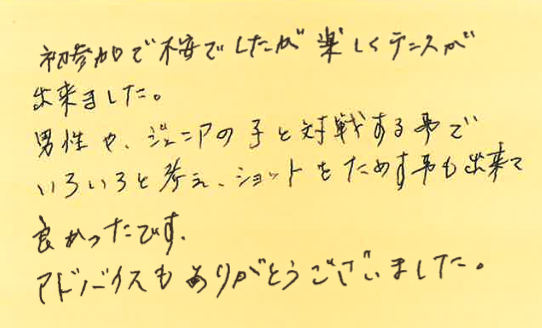 初参加で不安でしたが楽しくテニスが
出来ました。
男性や、ジュニアの子と対戦する事で
いろいろと考え、ショットをためす事も出来て
良かったです。
アドバイスもありがとうございました。